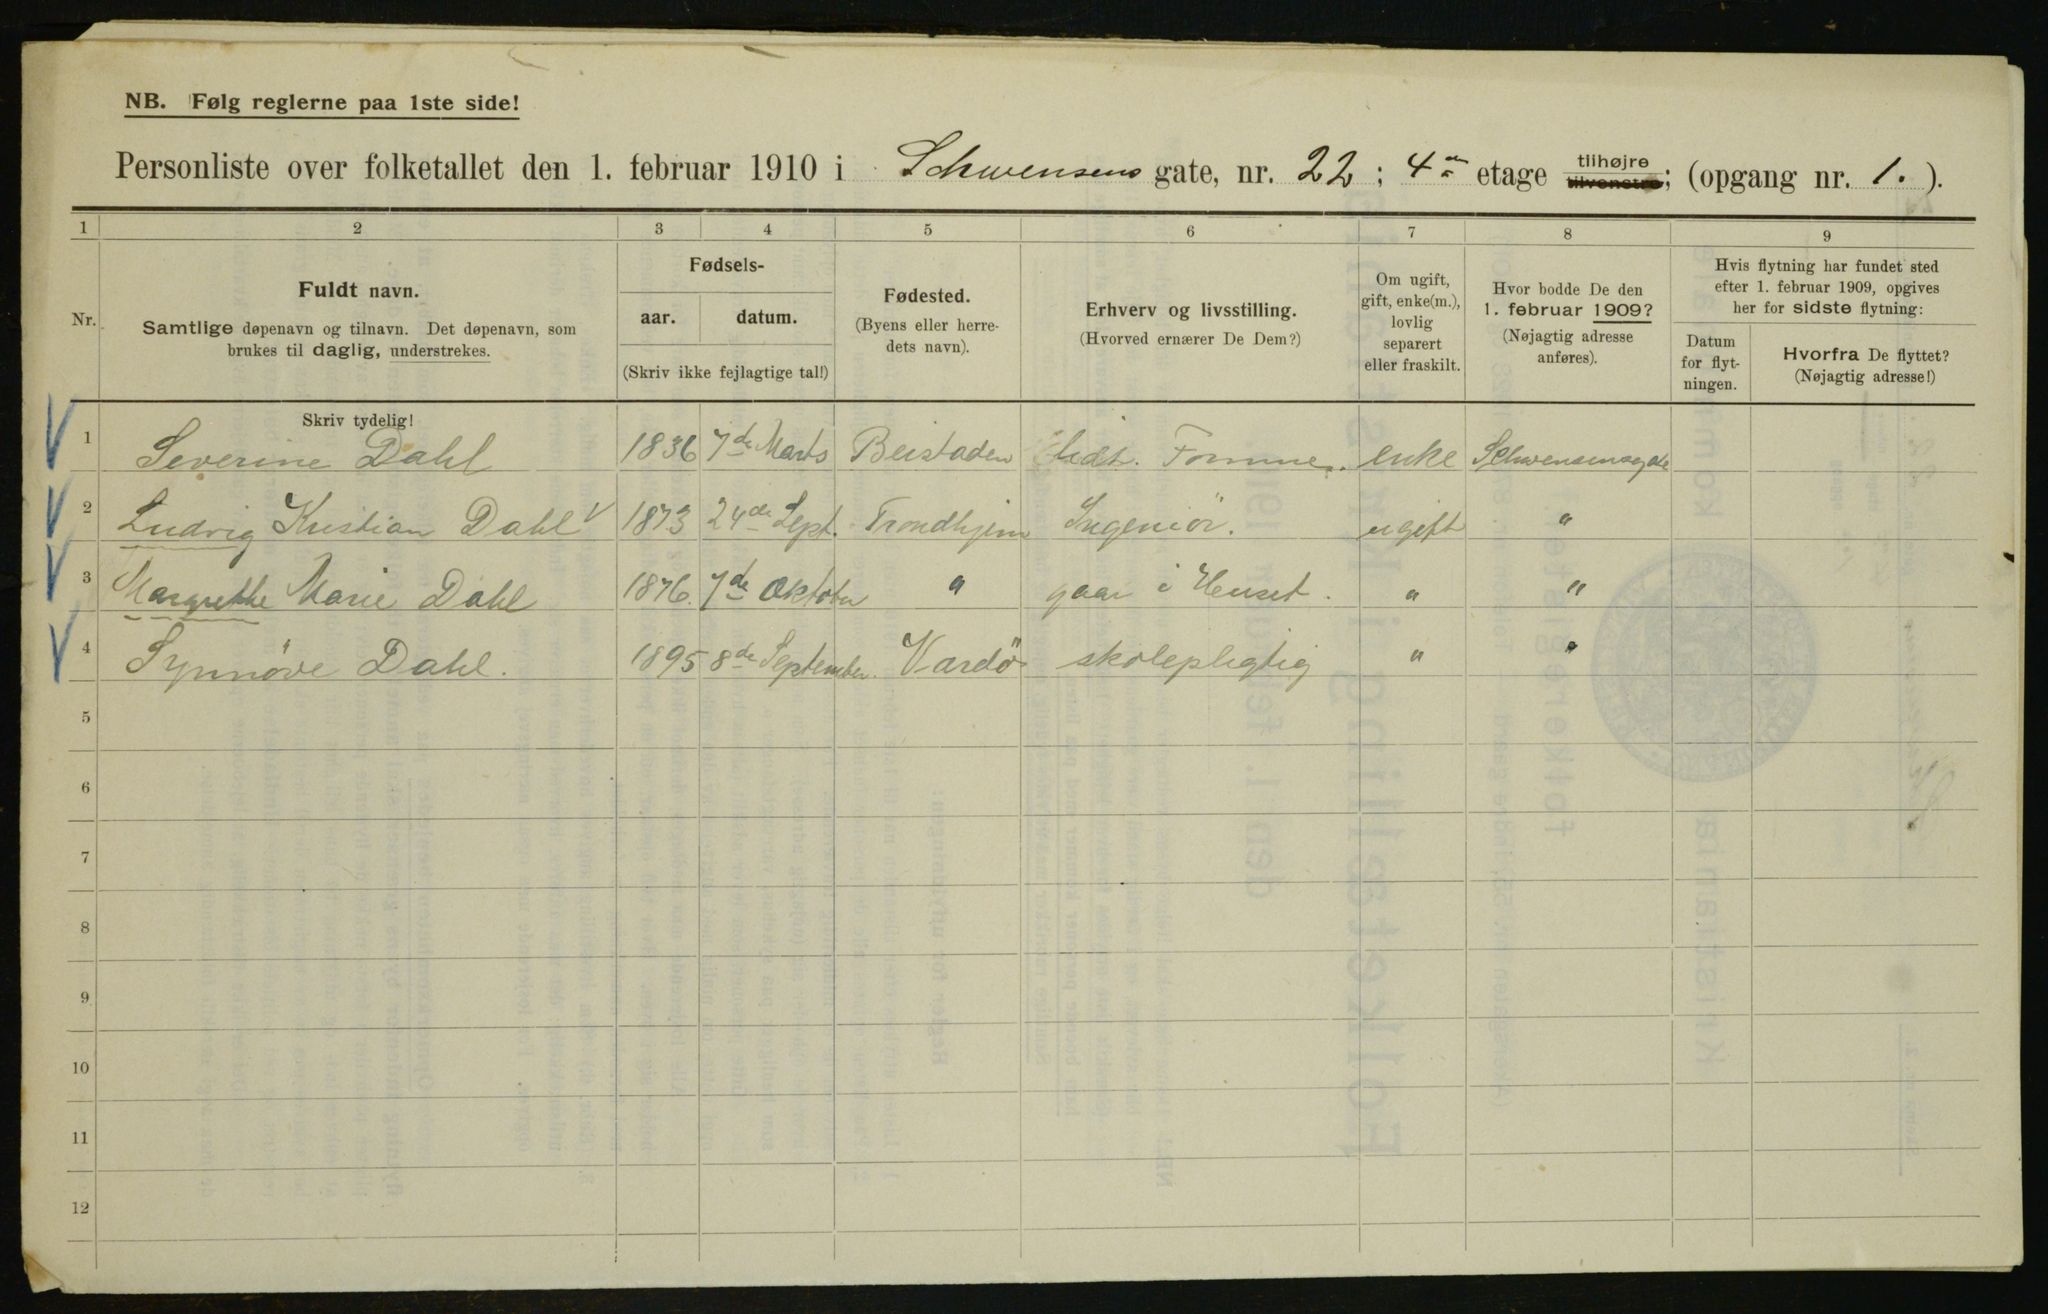 NB. Følg reglerne paa 1ste side!
Personliste over folketallet den 1. februar 1910 i Schwensens gate, nr. 22; 4de etage tilhøjre tilvenstre; (opgang nr. 1.).
1 2 3 4 5 6 7 8 9
Nr.
Fuldt navn.
Samtlige døpenavn og tilnavn. Det døpenavn, som
brukes til daglig, understrekes.
Fødsels-
aar. datum.
(Skriv ikke fejlagtige tal!)
Fødested.
(Byens eller herre-
dets navn).
Erhverv og livsstilling.
(Hvorved ernærer De Dem?)
Om ugift,
gift, enke(m.),
lovlig
separert
eller fraskilt.
Hvor bodde De den
1. februar 1909?
(Nøjagtig adresse
anføres).
Hvis flytning har fundet sted
efter 1. februar 1909, opgives
her for sidste flytning:
Datum
for flyt-
ningen.
Hvorfra De flyttet?
(Nøjagtig adresse!)
Skriv tydelig!
1 Severine Dahl 1836 7de Marts Beistaden enke Schwensensgde
2 Ludvig Kristian Dahl 1873 24de Sept. Trondhjem Ingeniör. ugift "
3 Margrethe Marie Dahl 1876. 7de Oktober " gaar i Huset. " "
4 Synnöve Dahl. 1895 8de September. Vardö skolepligtig " "
5
6
7
8
9
10
11
12